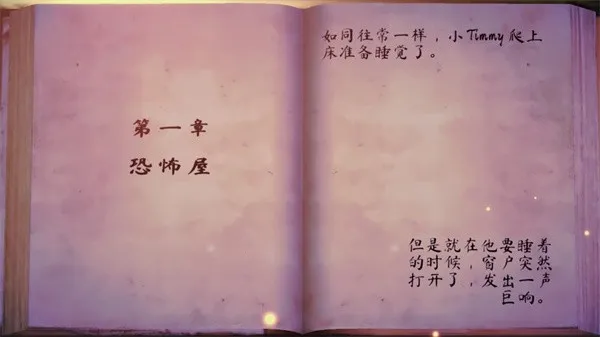 第一章
恐怖屋
如同往常一样，小Timmy爬上
床准备睡觉了。
但是就在他要睡着
的时候，窗户突然
打开了，发出一声
巨响。